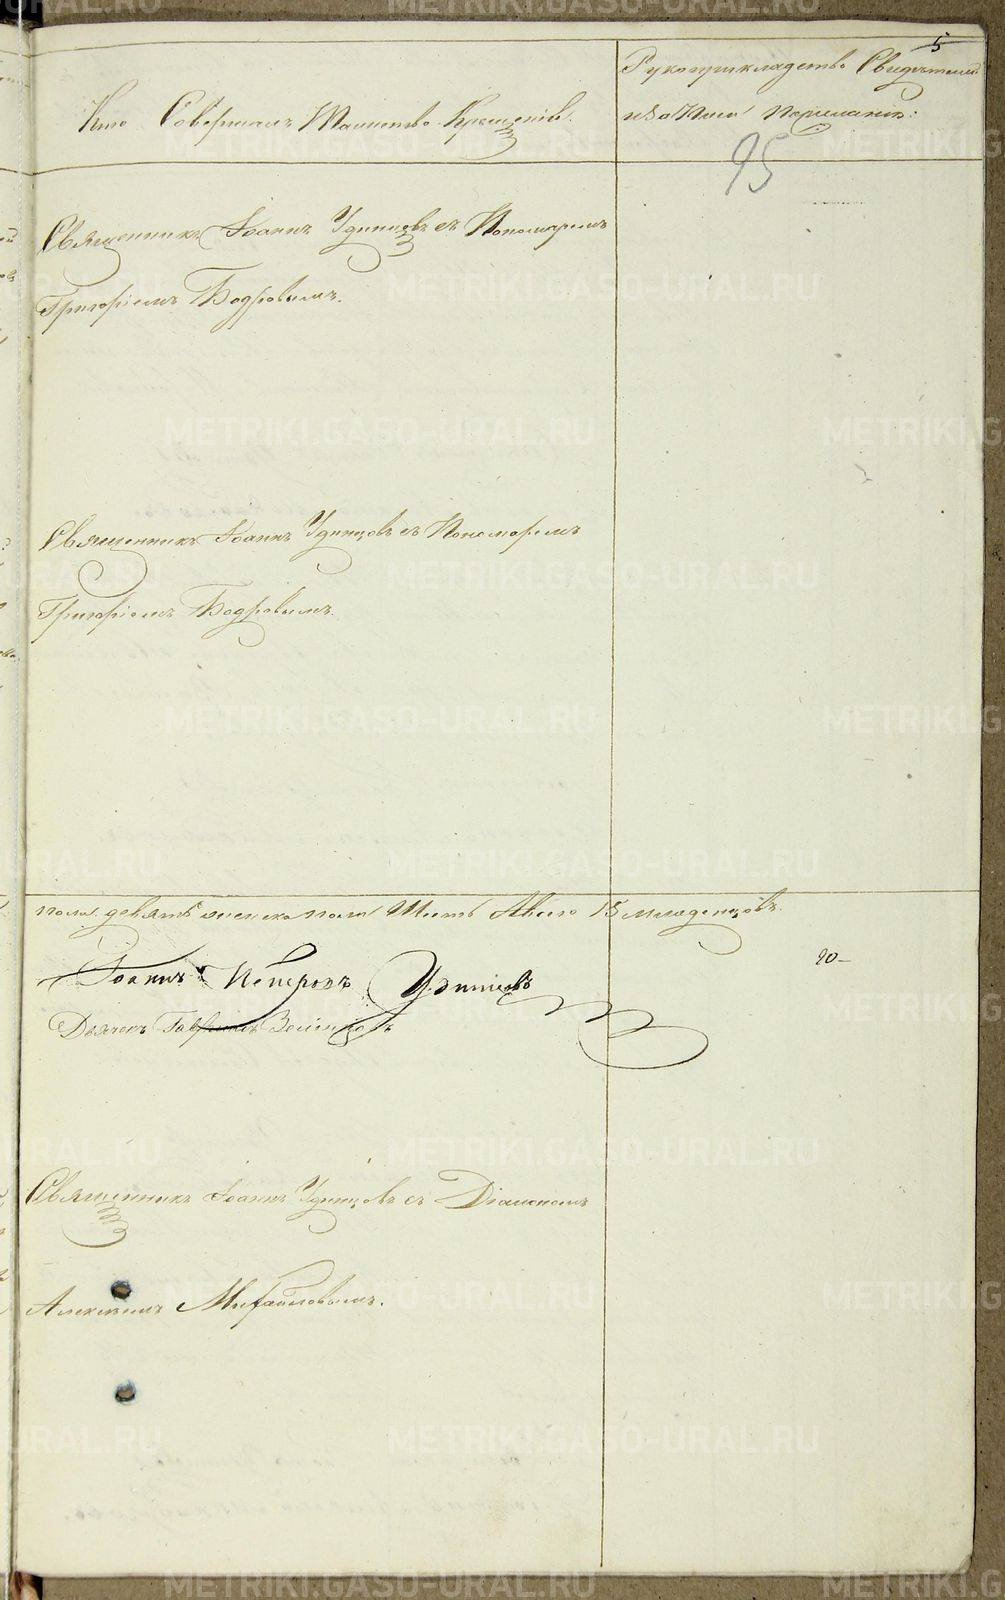 5
Рукоприкладство Свидетелей
Кто Совершалъ Таинство Крещенія.
по желанію:
95
Священникъ Іоаннъ Удинцовъ съ Пономаремъ
Григоріемъ Бодровымъ.
Священникъ Іоаннъ Удинцовъ съ Пономаремъ
Григоріемъ Бодровымъ.
пола девять женска пола Шесть Авсего 15 младенцовъ.
20-
Іоаннъ Петровъ Удинцовъ
Дьячекъ Гавріилъ
Священникъ Іоаннъ Удинцовъ съ Діакономъ
Алексѣемъ Михайловымъ.
METRIKI.GASO-URAL.RU